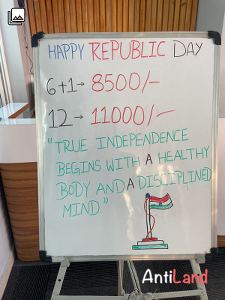 HAPPY REPUBLIC DAY
6+1→ 8500/-
12→ 11000/-
"TRUE INDEPENDENCE
BEGINS WITH A HEALTHY
BODY AND A DISCIPLINED
MIND"
AntiLand